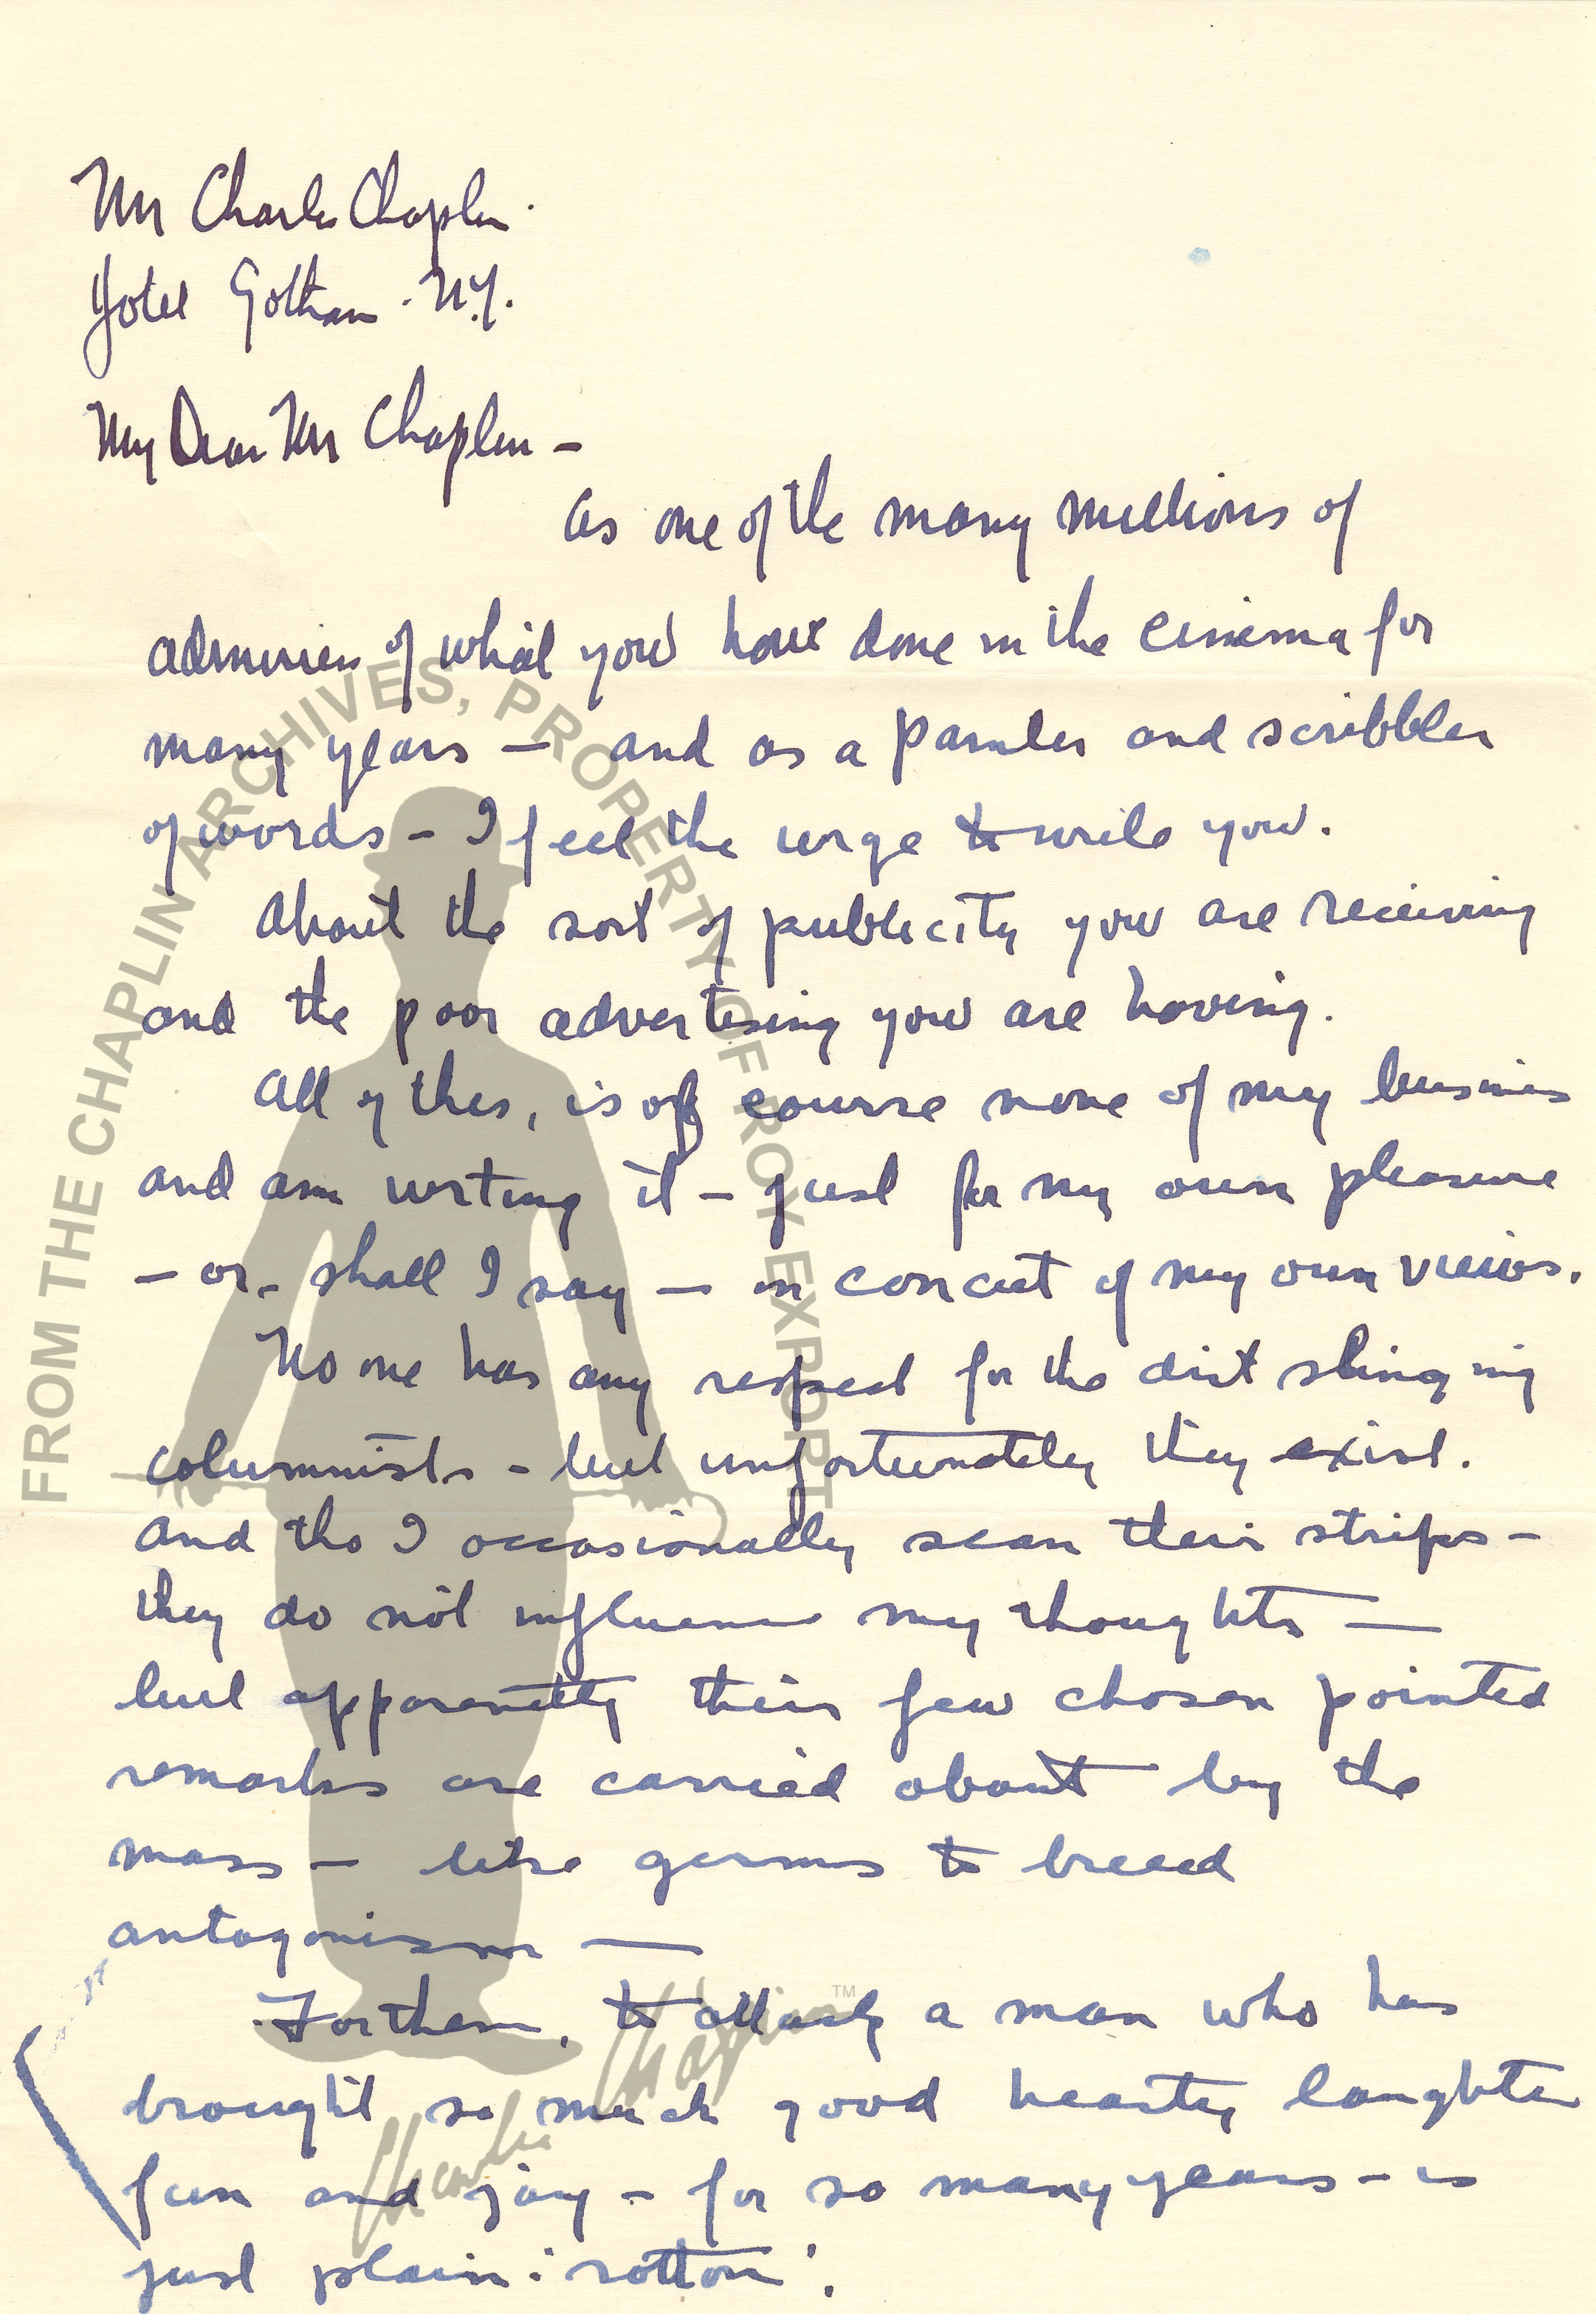 Mr Charles Chaplin.
Hotel Gotham. N.Y.
My Dear Mr Chaplin –
as one of the many millions of
admirers of what you have done in the cinema for
many years – and as a painter and scribbler
of words – I feel the urge to write you.
About the sort of publicity you are receiving
and the poor advertising you are having.
All of this, is of course none of my business
and am writing it – just for my own pleasure
– or – shall I say – in conceit of my own views.
No one has any respect for the dirt slinging
columnists – but unfortunately they exist.
and tho I occasionally scan their strips –
they do not influence my thoughts –
but apparently their few chosen pointed
remarks are carried about by the
mass – like germs to breed
antagonism –
For them, to attack a man who has
brought so much good hearty laughter
fun and joy – for so many years – is
just plain: rotton!
FROM THE CHAPLIN ARCHIVES, PROPERTY OF ROY EXPORT
Charlie Chaplin™